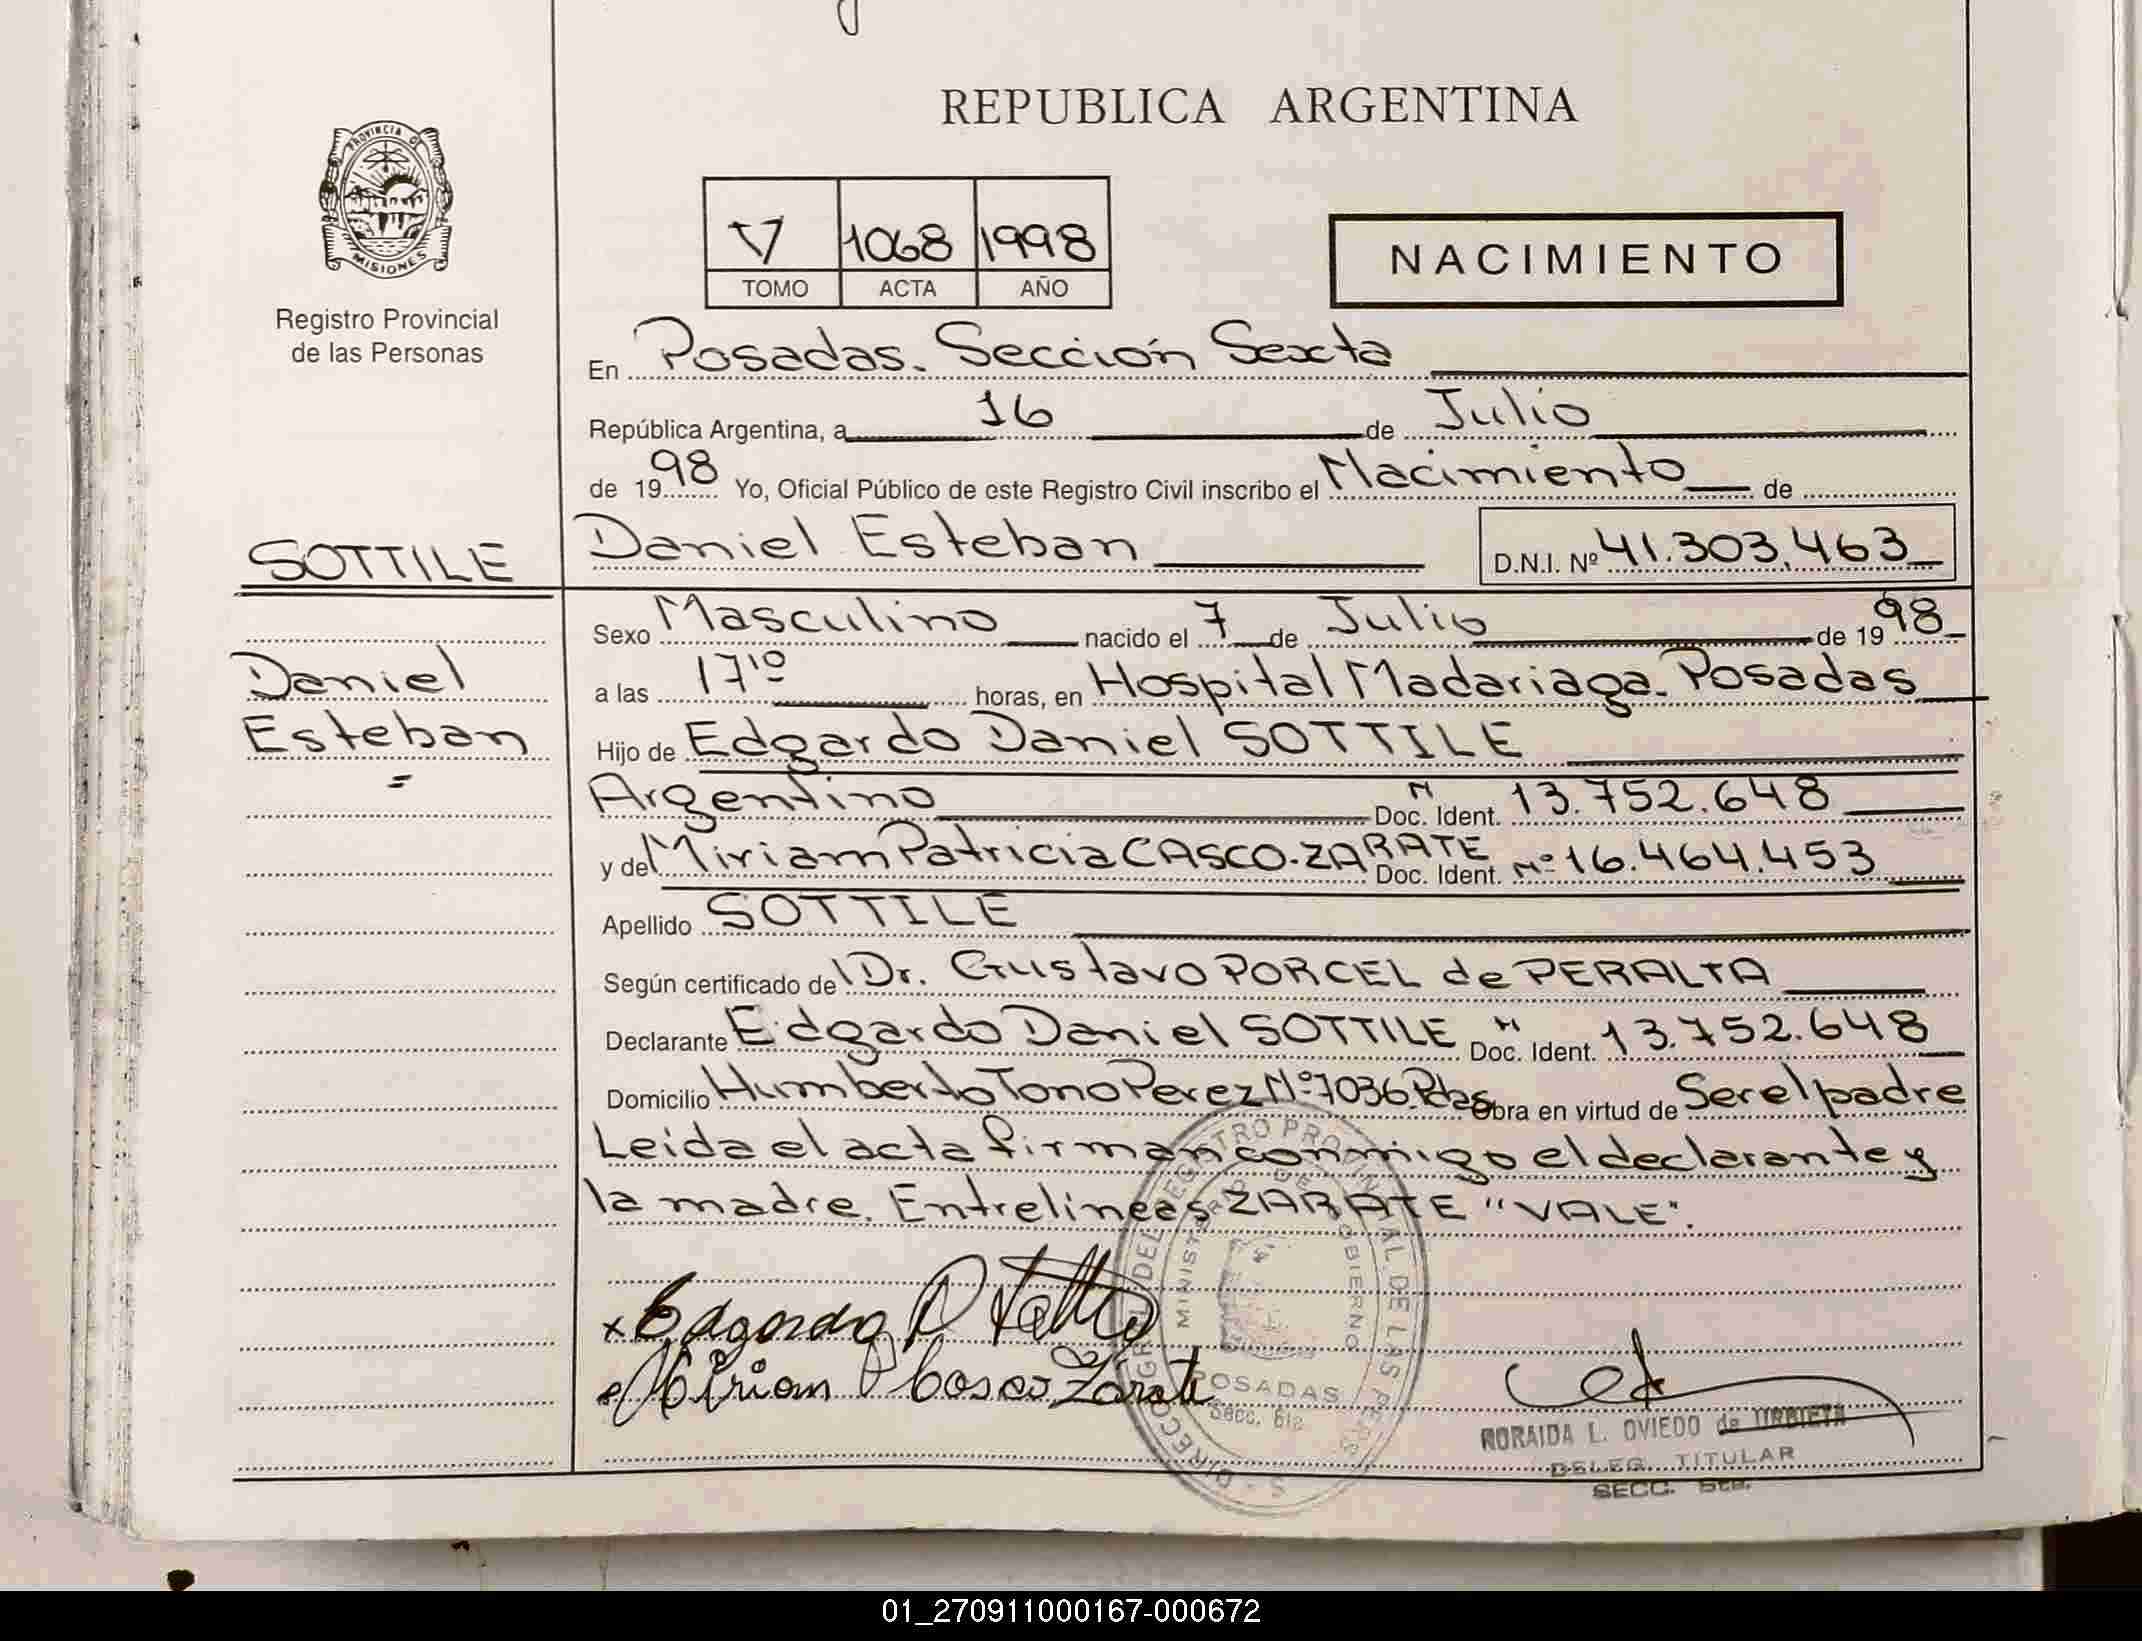 REPUBLICA ARGENTINA
PROVINCIA DE
MISIONES
Registro Provincial
de las Personas
V 1068 1998
TOMO ACTA AÑO
NACIMIENTO
En Posadas. Sección Sexta
República Argentina, a 16 de Julio
de 1998 Yo, Oficial Público de este Registro Civil inscribo el Nacimiento de
SOTTILE Daniel Esteban D.N.I. Nº 41.303.463
Sexo Masculino nacido el 7 de Julio de 1998
Daniel a las 17'º horas, en Hospital Madariaga. Posadas
Esteban Hijo de Edgardo Daniel SOTTILE
= Argentino Doc. Ident. N 13.752.648
y de Miriam Patricia CASCO-ZARATE Doc. Ident. Nº 16.464.453
Apellido SOTTILE
Según certificado de Dr. Gustavo PORCEL de PERALTA
Declarante Edgardo Daniel SOTTILE Doc. Ident. N 13.752.648
Domicilio Humberto Tono Perez Nº 7036 Pdas Obra en virtud de Ser el padre
Leida el acta firman conmigo el declarante y
la madre. Entrelineas ZARATE "VALE".
DIRECC. GRAL. DEL REGISTRO PROVINCIAL DE LAS PERS
MINISTERIO DE GOBIERNO
POSADAS
Secc. 6ta
x Edgardo D
Miriam P Casco Zárate
NORAIDA L. OVIEDO de URBIETA
DELEG. TITULAR
SECC. 6ta.
01_270911000167-000672